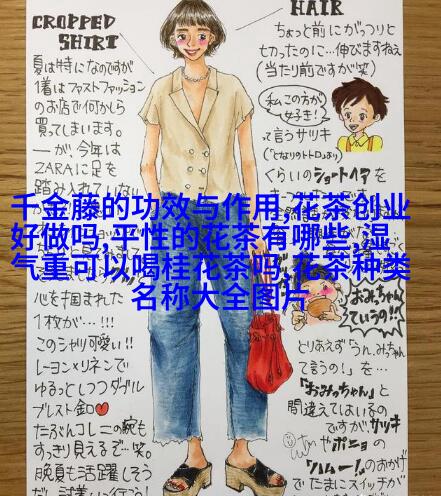 CROPPED
SHIRT
夏は特になのですが
1着はファストファッション
のお店で何かしら
買ってしまいます。
ーが、今年は
ZARAに足を
踏み入れていな
HAIR
ちょっと前にがっつりと
切ったのに…伸びますねぇ
(当たり前ですが笑)
私この方が
好き!
って言うサツキ
(「となりのトトロ」より)
くらいのショートヘアを
千金藤的功效与作用,花茶创业
好做吗,平性的花茶有哪些,湿
气重可以喝桂花茶吗,花茶种类
名称大全图片
心を掴まれた
1枚が…!!!
このシャツ可愛い!!
レーヨン×リネンで
ゆるっとしつつダブル
ブレスト釦
たぶんコレ二の腕も
すっきり見えるぞ…笑。
晩夏も活躍しそう
おみっちゃん
ていうの!!
とりあえず「うん、みっちゃん
て言うの!」を…
「おみっちゃん」と
間違えてはいるの
ですが、サツキ
やポニョの
「ハムー!」のおかげ
でたまにスイッチが